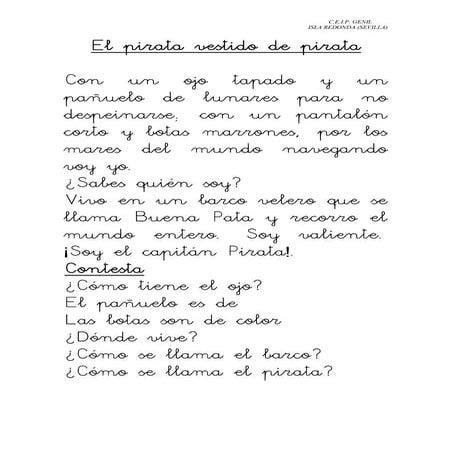 C.E.I.P. GENIL
ISLA REDONDA (SEVILLA)
El pirata vestido de pirata
Con un ojo tapado y un
pañuelo de lunares para no
despeinarse; con un pantalón
corto y botas marrones, por los
mares del mundo navegando
voy yo.
¿Sabes quién soy?
Vivo en un barco velero que se
llama Buena Pata y recorro el
mundo entero. Soy valiente.
¡Soy el capitán Pirata!.
Contesta
¿Cómo tiene el ojo?
El pañuelo es de
Las botas son de color
¿Dónde vive?
¿Cómo se llama el barco?
¿Cómo se llama el pirata?